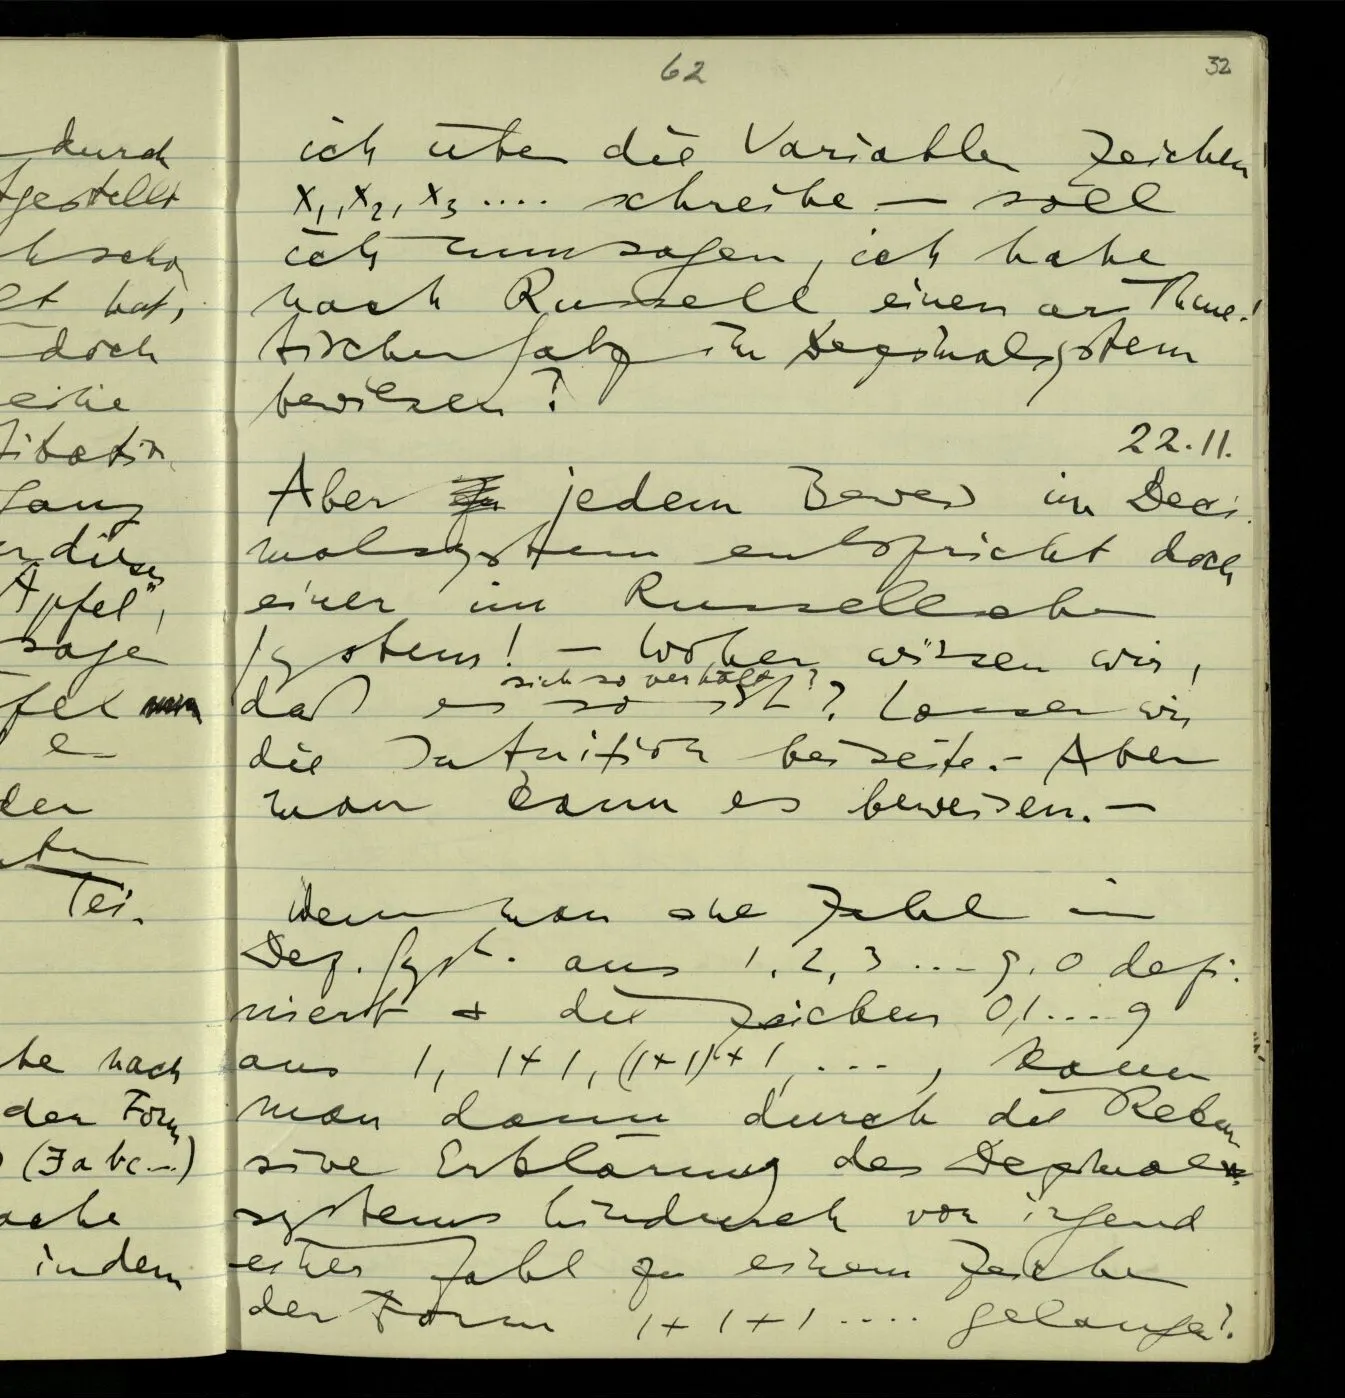 62
32
durch
gestellt
schon
hat,
doch
eine
ganz
diesen
Äpfel",
sage
der
Tei-
be nach
der Form
(∃abc...)
ache
indem
ich über die Variablen Zeichen
x₁, x₂, x₃ .... schreibe – soll
ich nun sagen, ich habe
nach Russell einen arithme-
tischen Satz im Dezimalsystem
bewiesen?
22.11.
Aber jedem Beweis im Dezi-
malsystem entspricht doch
einer im Russellschen
System! – Woher wissen wir,
sich so verhält?
daß es so ist? Lassen wir
die Intuition beiseite. – Aber
man kann es beweisen. –
Wenn man eine Zahl im
Dez. Syst. aus 1, 2, 3 ... 9, 0 defi-
niert & die Zeichen 0, 1 .... 9
aus 1, 1+1, (1+1)+1, ..., kann
man dann durch die Rekur-
sive Erklärung des Dezimal-
systems hindurch von irgend
einer Zahl zu einem Zeichen
der Form 1+1+1 .... gelangen?